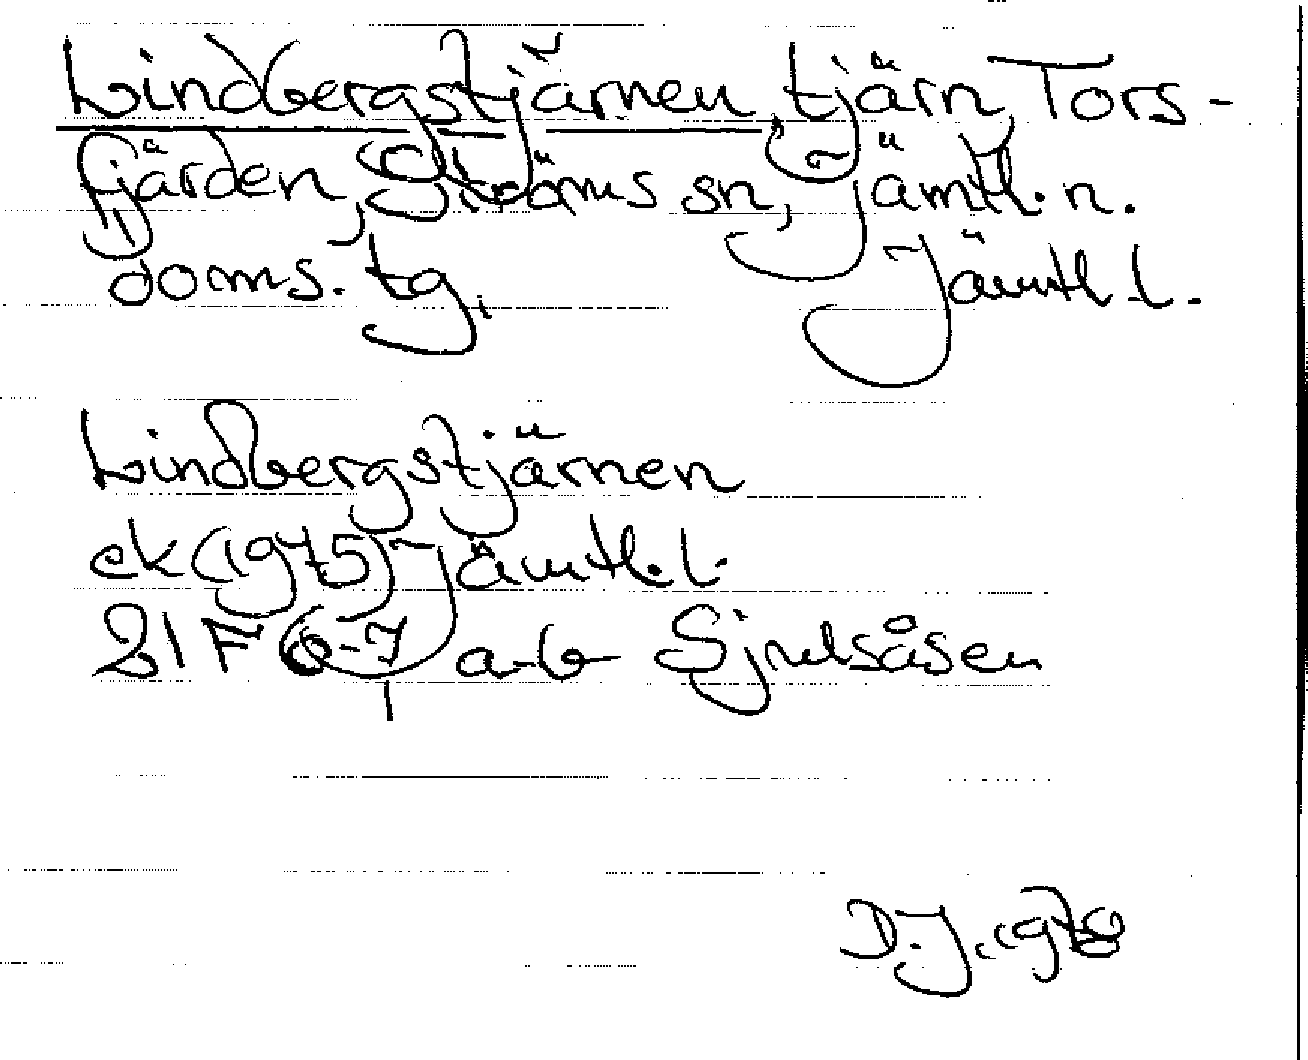 Lindbergstjärnen, tjärn, Tors-
fjärden, Ströms sn, Jämtl. n.
doms. tg, Jämtl. l.
Lindbergstjärnen
ek (1975) Jämtl. l.
21 F 6-7 a-b Sjulsåsen
D.J. 1978